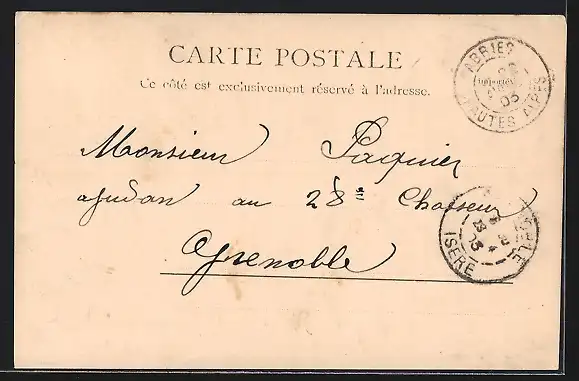 CARTE POSTALE
Ce côté est exclusivement réservé à l'adresse.
ABRIES
HAUTES ALPES
03
Monsieur Paquier
ajudan au 28e Chasseur
Grenoble
ISERE